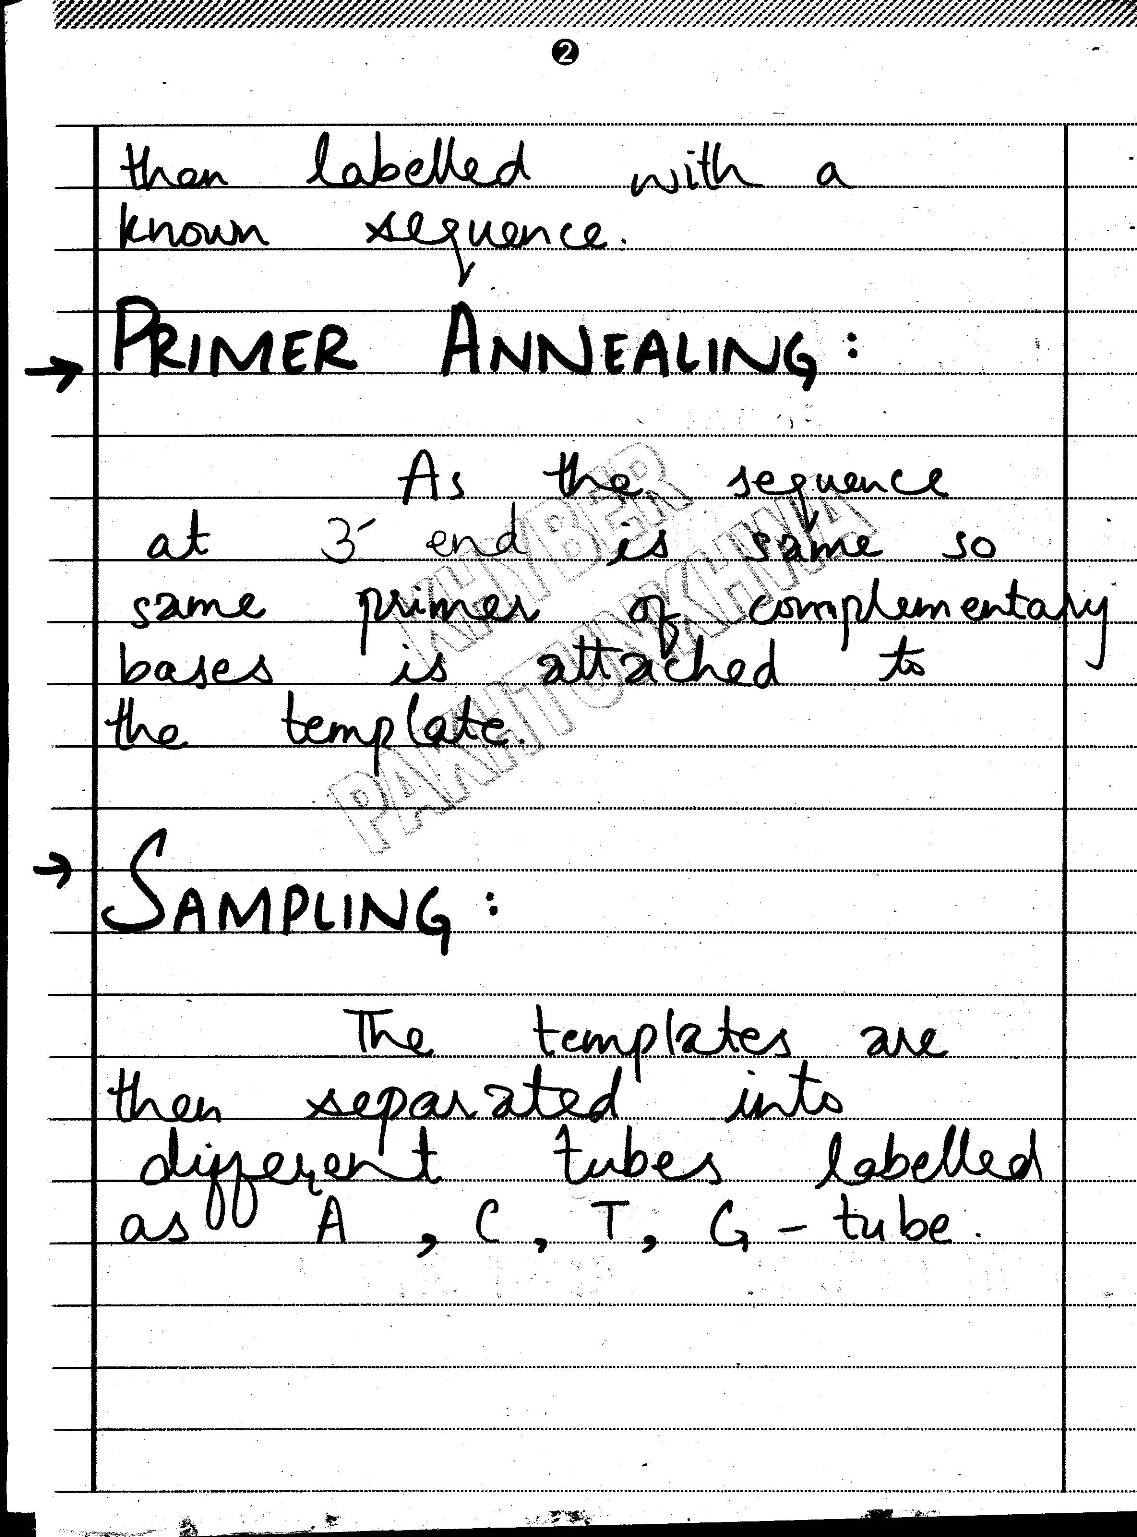 2
then labelled with a
known sequence.
→ PRIMER ANNEALING:
As the sequence
at 3' end is same so
same primer of complementary
bases is attached to
the template.
KHYBER
PAKHTUNKHWA
→ SAMPLING:
The templates are
then separated into
different tubes labelled
as A, C, T, G - tube.